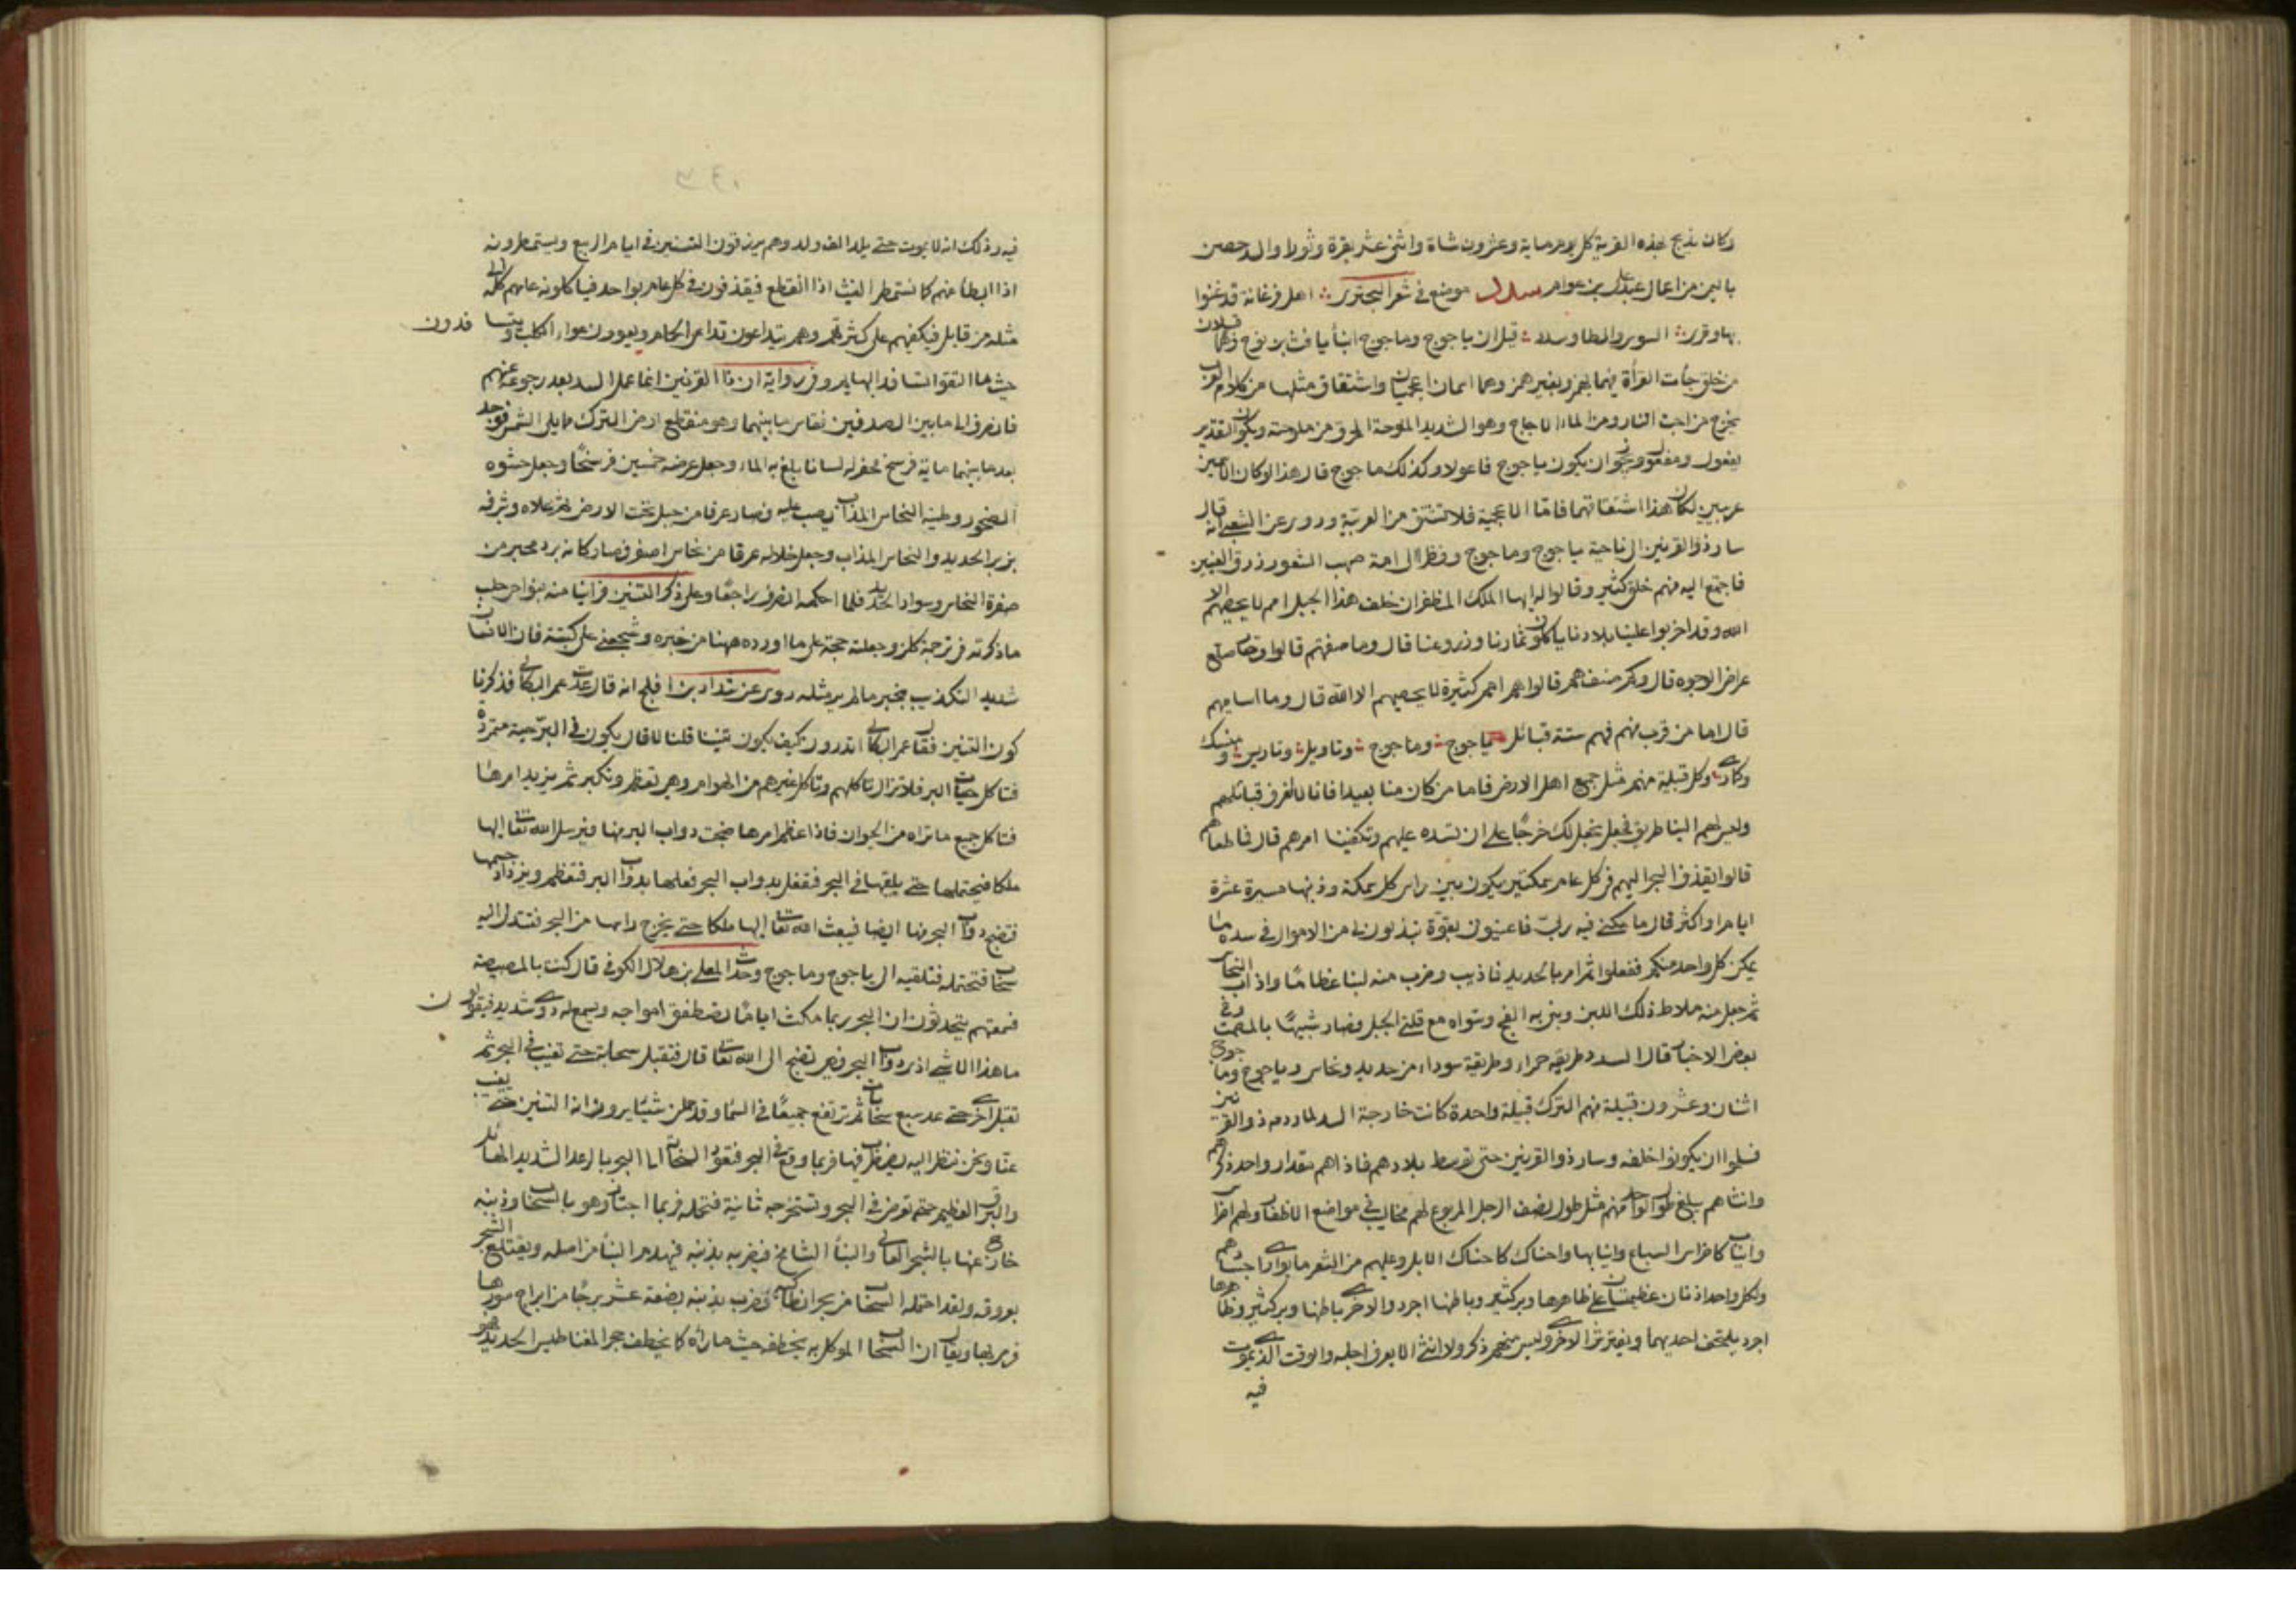 وكان يذبح بهذه القرية كل يوم ماية وعشرون شاة واثنى عشر بقرة وثورا والد حصن
باليمن من اعمال عبد علي بن عواض سدد موضع في شعر البحتري اهل فرغانة قد غنوا
بها وقرى السوس والطا وسدد قيل ان ياجوج وماجوج ابنا يافث بن نوح وهما قبيلان
من خلق جأت القرأة فيهما بهمز وبغير همز وهما اسمان اعجميان واشتقاق مثلهما من كلام العرب
يخرج من اجت النار ومن الماء الاجاج وهو الشديد الملوحة المحرق من ملوحته ويكون التقدير
يفعول ومفعول ويجوز ان يكون ياجوج فاعولا وكذلك ماجوج قال هذا لو كان الاسمين
عربيين لكان هذا اشتقاقهما فاما الاعجمية فلا تشتق من العربية وروى عن الشعبي انه قال
سار ذو القرنين الى ناحية ياجوج وماجوج ونظر الى امة صهب الشعور زرق العينين
فاجتمع اليه منهم خلق كثير وقالوا له ايها الملك المظفر ان خلف هذا الجبل امم لا يحصيهم الا
الله وقد اخربوا علينا بلادنا ياكلون ثمارنا وزروعنا قال وما صفتهم قالوا قصار صلع
عراض الوجوه قال وكم صنف هم قالوا هم امم كثيرة لا يحصيهم الا الله قال وما اساميهم
قال اما من قرب منهم فهم ستة قبائل ياجوج وماجوج وتاويل وتاريس ومنسك
وكمارى وكل قبيلة منهم مثل جميع اهل الارض فاما من كان منا بعيدا فانا لا نعرف قبائلهم
وليس لهم الينا طريق فهل نجعل لك خرجًا على ان تسده عليهم وتكفينا امرهم قال فما طعامهم
قالوا يقذف البحر اليهم في كل عام سمكتين يكون بين راس كل سمكة وذنبها مسيرة عشرة
ايام او اكثر قال ما مكنى فيه ربى خير فاعينونى بقوة تبذلون لى من الاموال في سده ما
يمكن كل واحد منكم ففعلوا ثم امر بالحديد فاذيب وضرب منه لبنا عظامًا واذاب النحاس
ثم جعل منه ملاط ذلك اللبن وبنى به الفج وسواه مع قلتى الجبل فصار شبيهًا بالمصمت وفي
بعض الاخبار قال السد طريقة حمراء وطريقة سوداء من حديد ونحاس وياجوج وماجوج
اثنان وعشرون قبيلة منهم الترك قبيلة واحدة كانت خارجة السد لما ردمه ذو القرنين
فسلموا ان يكونوا خلفه وسار ذو القرنين حتى توسط بلادهم فاذا هم مقدار واحد ذكرهم
وانثاهم يبلغ طول الواحد منهم مثل طول نصف الرجل المربوع لهم مخاليب في مواضع الاظفار ولهم اضراس
وانياب كاضراس السباع وانيابها واحناك كاحناك الابل وعليهم من الشعر ما يوارى اجسادهم
ولكل واحد اذنان عظيمتان على ظاهرها وبر كثير وباطنها اجرد والاخرى باطنها وبر كثير وظاهرها
اجرد يلتحف احديهما ويفترش الاخرى وليس منهم ذكر ولا انثى الا يعرف اجله والوقت الذى يموت
فيه
فيه وذلك انه لا يموت حتى يلد الف ولد وهم يرزقون التنين في ايام الربيع ويستمطرونه
اذا ابطأ عنهم كما نستمطر الغيث اذا انقطع فيقذفون في كل عام بواحد فياكلونه عامهم كله الى
مثله من قابل فيكفيهم على كثرتهم وهم يتداعون تداعى الحمام ويعوون عواء الكلاب ويتسافدون
حيث ما التقوا تسافد البهايم وفي رواية ان ذا القرنين انما عمل السد بعد رجوعه عنهم
فانصرف الى ما بين الصدفين فقاس ما بينهما وهو منقطع ارض الترك مما يلى الشمس فوجد
بعد ما بينهما ماية فرسخ فحفر له اساسا بلغ به الماء وجعل عرضه خمسين فرسخًا وجعل حشوه
الصخور وطينه النحاس المذاب يصب عليه فصار عرقا من جبل تحت الارض ثم علاه وشرفه
بزبر الحديد والنحاس المذاب وجعل خلاله عرقا من نحاس اصفر فصار كانه برد محبر من
صفرة النحاس وسواد الحديد فلما احكمه انصرف راجعًا وعلى ذكر التنين
ماذكرته في ترجمة كلز وجعلته حجة على ما اورده ههنا من خبره وشجعنى على كتبته فان الانسان
شديد التكذيب بخبر ما لم ير مثله روى عن شداد بن افلح انه قال عدت عمر البكالى فذكرنا
كون التنين فقال عمر البكالى اتدرون كيف يكون تنينا قلنا لا قال يكون في البر حية متمردة
فتاكل حيات البر فلا تزال تاكلهم وتاكل غيرهم من الهوام وهى تعظم وتكبر ثم يزيد امرها
فتاكل جميع ما تراه من الحيوان فاذا عظم امرها ضجت دواب البر منها فيرسل الله تعالى اليها
ملكا فيحتملها حتى يلقيها في البحر فتفعل بدواب البحر فعلها بدواب البر فتعظم ويزداد جسمها
فتضج دواب البحر منها ايضا فيبعث الله تعالى اليها ملكا حتى يخرج راسها من البحر فتتدلى اليه
سحاب فتحتمله فتلقيه الى ياجوج وماجوج وحدث المعلى بن هلال الكوفى قال كنت بالمصيصة
فسمعتهم يتحدثون ان البحر ربما مكث ايامًا تصطفق امواجه ويسمع له دوى شديد فيقولون
ما هذا الا شى اذى دواب البحر فهى تضج الى الله تعالى قال فتقبل سحابة حتى تغيب في البحر ثم
تقبل اخرى حتى عد سبع سحابات ثم ترتفع جميعًا في السماء وقد حملن شيئا يرون انه التنين حتى يغيب
عنا ونحن ننظر اليه يضطرب فيها فربما وقع في البحر فتعود السحاب الى البحر بالرعد الشديد الهائل
والبرق العظيم حتى تغوص في البحر وتستخرجه ثانية فتحمله فربما اجتاز وهو بالسحاب وذنبه
خارج عنها بالشجر العالى والبناء الشامخ فيضربه بذنبه فيهدم البناء من اصله ويقتلع الشجر
بعروقه ولقد احتمله السحاب من بحر انطاكية فضرب بذنبه بضعة عشر برجًا من ابراج سورها
فرمى بها ويقال ان السحاب الموكل به يخطفه حيث ما رآه كما يخطف حجر المغناطيس الحديد فهو